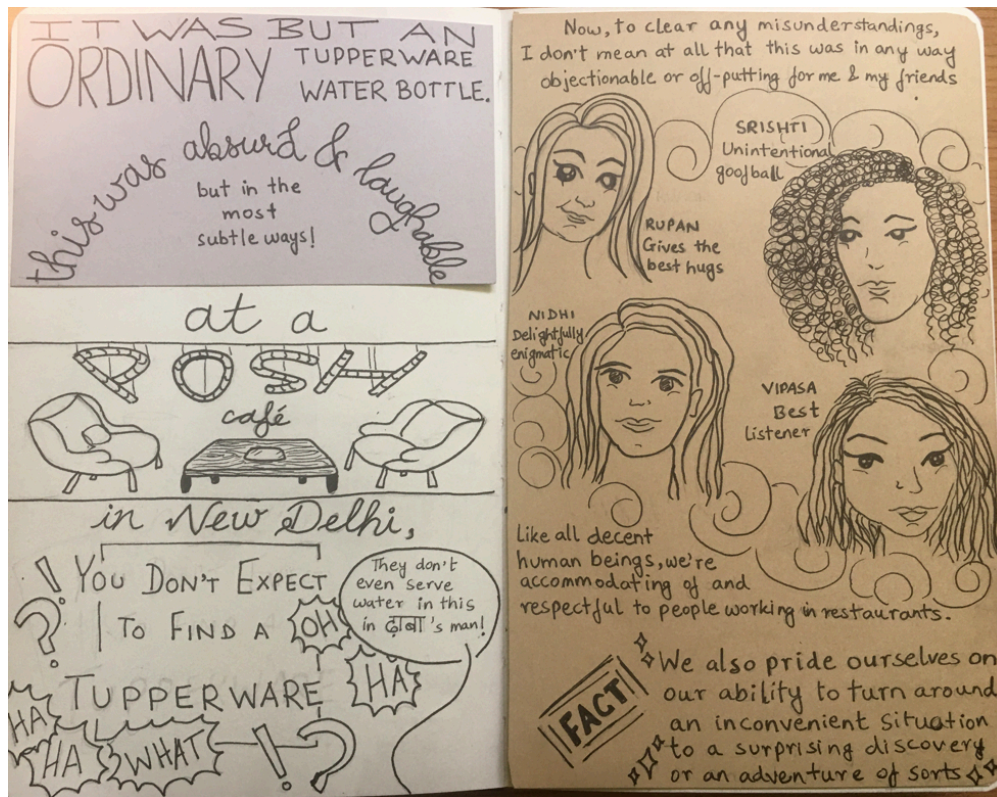 IT WAS BUT AN
ORDINARY TUPPERWARE
WATER BOTTLE.
this was absurd & laughable
but in the
most
subtle ways!
at a
POSH
café
in New Delhi,
YOU DON'T EXPECT
TO FIND A
TUPPERWARE
!?
OH
HA
HA
HA
WHAT
!?
They don't
even serve
water in this
in ढाबा's man!
Now, to clear any misunderstandings,
I don't mean at all that this was in any way
objectionable or off-putting for me & my friends
SRISHTI
Unintentional
goofball
RUPAN
Gives the
best hugs
NIDHI
Delightfully
enigmatic
VIPASA
Best
Listener
Like all decent
human beings, we're
accommodating of and
respectful to people working in restaurants.
FACT
We also pride ourselves on
our ability to turn around
an inconvenient situation
to a surprising discovery
or an adventure of sorts